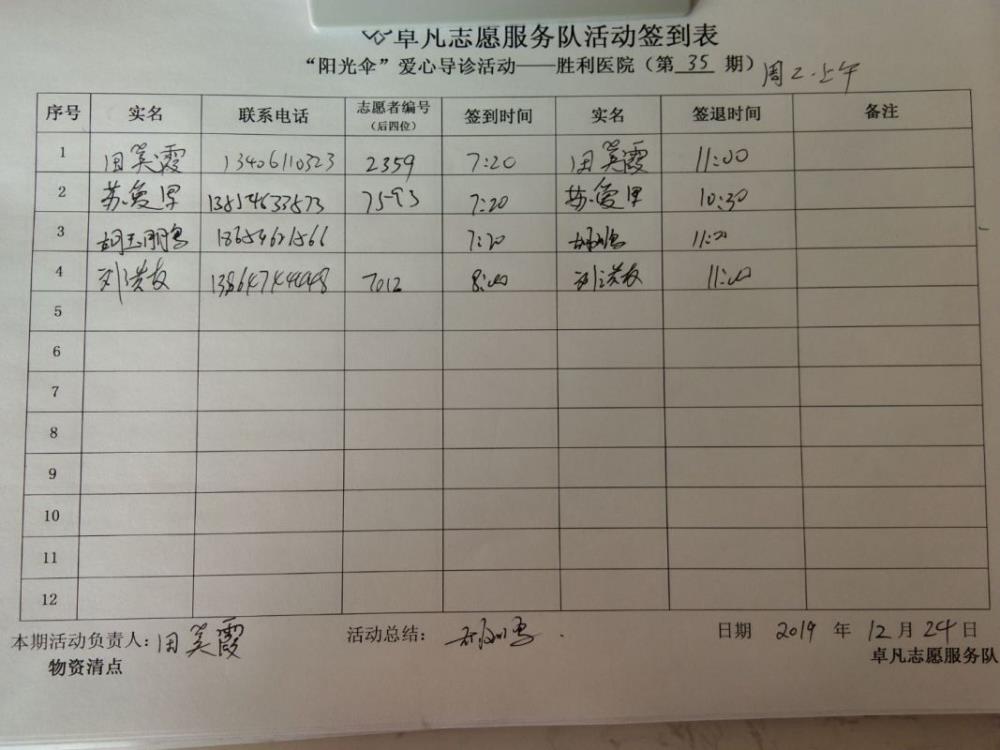 卓凡志愿服务队活动签到表
“阳光伞”爱心导诊活动——胜利医院（第 35 期） 周2.上午
序号 实名 联系电话 志愿者编号（后四位） 签到时间 实名 签退时间 备注
1 田笑霞 13406110323 2359 7:20 田笑霞 11:00
2 苏 7593 7:20 苏 10:30
3 胡玉鹏 7:20 11:20
4 刘洪友 7012 8:00 刘洪友 11:00
5
6
7
8
9
10
11
12
本期活动负责人：田笑霞 活动总结： 日期 2019 年 12 月 24 日
物资清点 卓凡志愿服务队